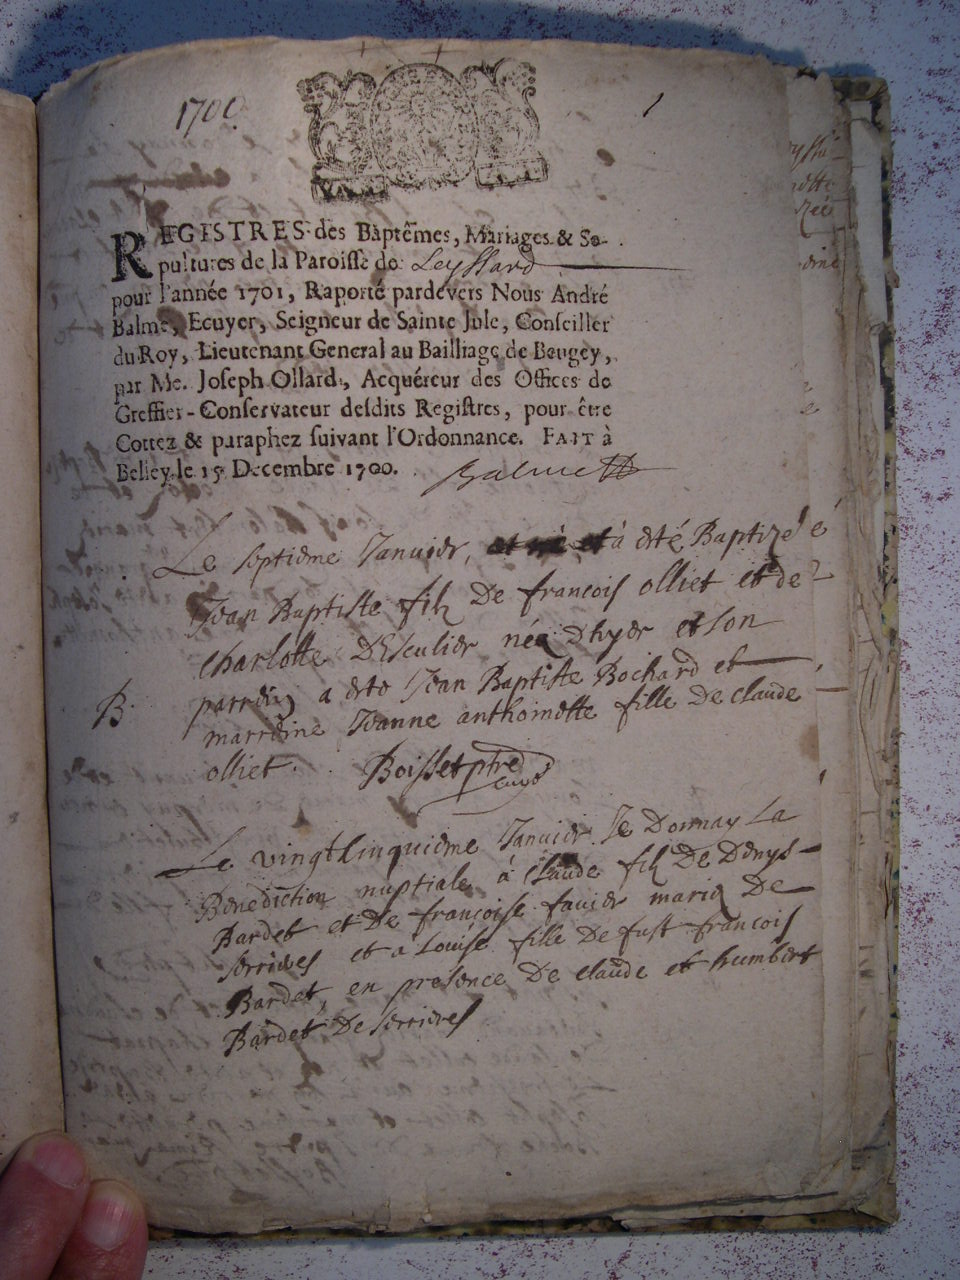 1700.
1
REGISTRES des Baptêmes, Mariages & Se-
pultures de la Paroisse de Leyssard
pour l'année 1701, Raporté pardevers Nous André
Balme, Ecuyer, Seigneur de Sainte Jule, Conseiller
du Roy, Lieutenant General au Bailliage de Beugey,
par Me. Joseph Ollard, Acquéreur des Offices de
Greffier-Conservateur desdits Registres, pour être
Cottez & paraphez suivant l'Ordonnance. FAIT à
Belley le 15 Decembre 1700. Balme
Le septieme Janvier, à esté Baptizé
Jean Baptiste filz De francois olliet et de
charlotte D'Esculier néq d'hyer et son
B. parrein a esté Jean Baptiste Bochard et
marreine Jeanne anthoinette fille De claude
olliet. Boisset ptre
curé
Le vingtcinquieme Janvier Je Donnay La
Benediction nuptiale à claude filz De Denys
Bardet et De francoise favier marié De
serrieres et à Louise fille De fust francois
Bardet, en presence De claude et humbert
Bardet De serrieres